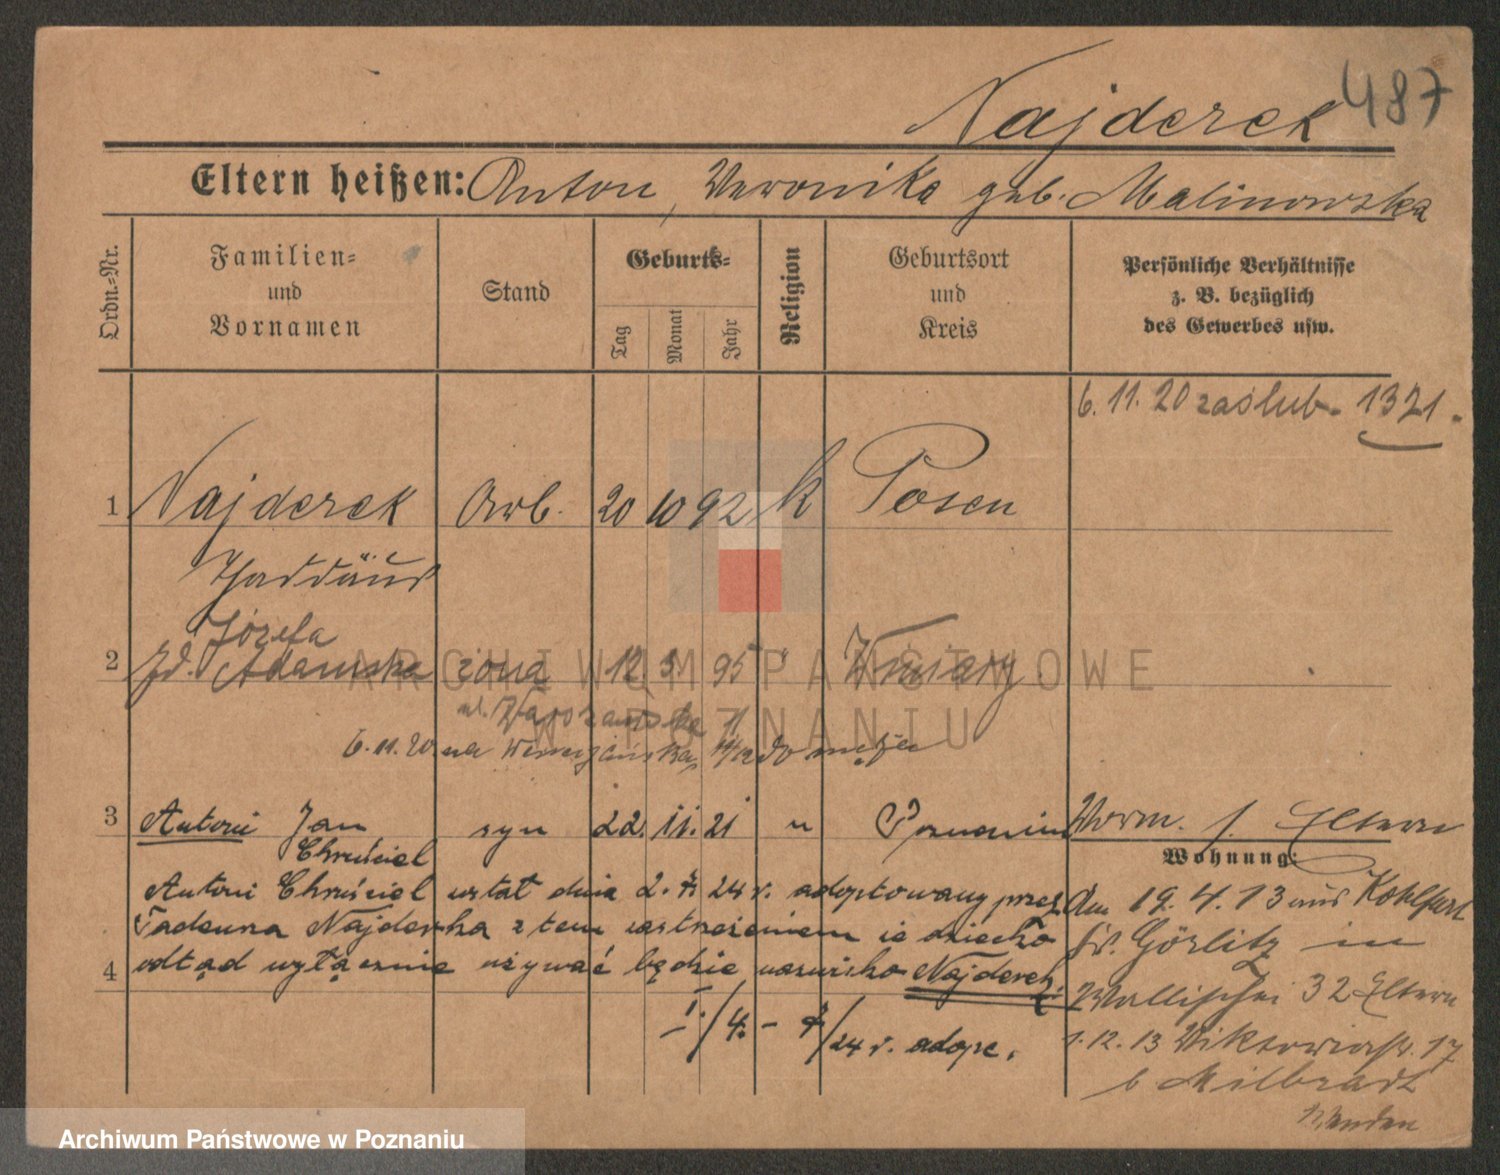 487
Najderek
Eltern heißen: Anton, Veronika geb. Malinowska
Ordn.-Nr.
Familien- und Vornamen
Stand
Geburts-
Tag
Monat
Jahr
Religion
Geburtsort und Kreis
Persönliche Verhältnisse z. B. bezüglich des Gewerbes usw.
6. 11. 20 zaślub. 1321.
1 Najderek Arb. 20 10 92 k Posen
Thaddäus
Józefa
2 Adamska żona 12 3. 95 "
ul. Warszawska 11
6.11.20 na do męża
3 Antoni Jan syn 22. 11. 21 " Poznaniu Vorm. s. Eltern
Chruściel
Wohnung:
Antoni Chruściel został dnia 2. 24 r. adoptowany przez
Tadeusza Najderka z tem zastrzeżeniem że dziecko
4 odtąd wyłącznie używać będzie nazwisko Najderek.
24 r. adopc.
Am 19. 4. 13 aus Kohlfurt
Kr. Görlitz in
Wallischei 32 Eltern
1. 12. 13 Viktoriastr. 17
b Milbradt
Wenden
ARCHIWUM PAŃSTWOWE
W POZNANIU
Archiwum Państwowe w Poznaniu